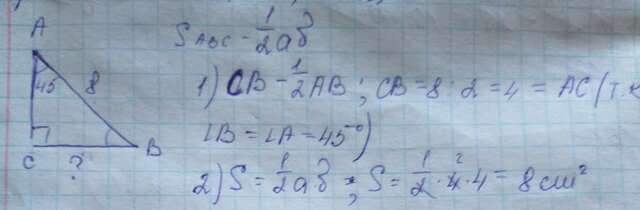 A
45
8
C
?
B
S ABC - 1/2 аб
1) CB - 1/2 AB ; CB = 8 : 2 = 4 = AC (т.к
∠B = ∠A = 45°)
2) S = 1/2 аб ; S = 1/2 · 4 · 4 = 8 cm²
2